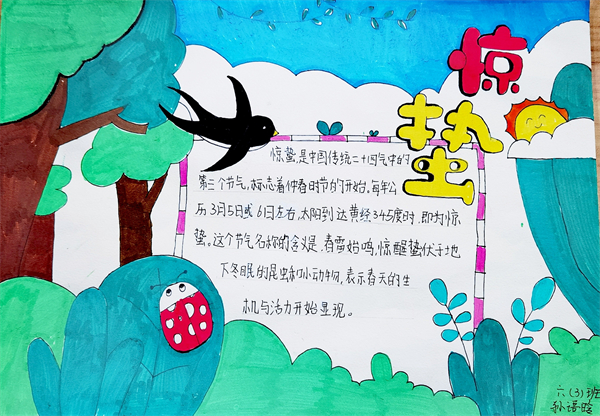 惊
蛰
惊蛰,是中国传统二十四气中的
第三个节气,标志着仲春时节的开始。每年公
历3月5日或6日左右,太阳到达黄经345度时,即为惊
蛰。这个节气名称的含义是,春雷始鸣,惊醒蛰伏于地
下冬眠的昆虫和小动物,表示春天的生
机与活力开始显现。
六(3)班
孙语晗